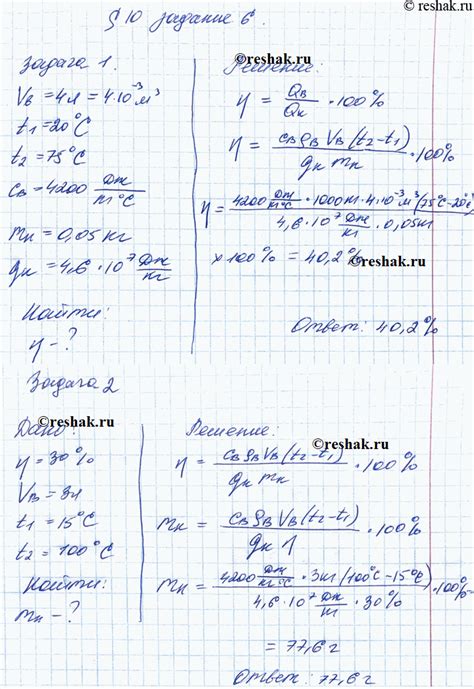 ©reshak.ru
§10 задание 6.
©reshak.ru
Задача 1.
Vв = 4л = 4·10⁻³ м³
t₁ = 20°C
t₂ = 75°C
cв = 4200 Дж/кг°C
mк = 0,05 кг
qк = 4,6·10⁷ Дж/кг
Найти:
η - ?
Решение:
η = Qв/Qк · 100%
η = cвρвVв(t₂-t₁)/qк mк · 100%
η = 4200 Дж/кг°C · 1000 кг · 4·10⁻³ м³ (75°C - 20°C)/4,6·10⁷ Дж/кг · 0,05 кг
× 100% = 40,2%
©reshak.ru
Ответ: 40,2%
Задача 2
©reshak.ru
Дано:
η = 30%
Vв = 3л
t₁ = 15°C
t₂ = 100°C
Найти:
mк - ?
©reshak.ru
Решение:
η = cвρвVв(t₂-t₁)/qк mк · 100%
mк = cвρвVв(t₂-t₁)/qк η · 100%
mк = 4200 Дж/кг°C · 3кг (100°C - 15°C)/4,6·10⁷ Дж/кг · 30% · 100% =
= 77,6 г
Ответ: 77,6 г
©reshak.ru